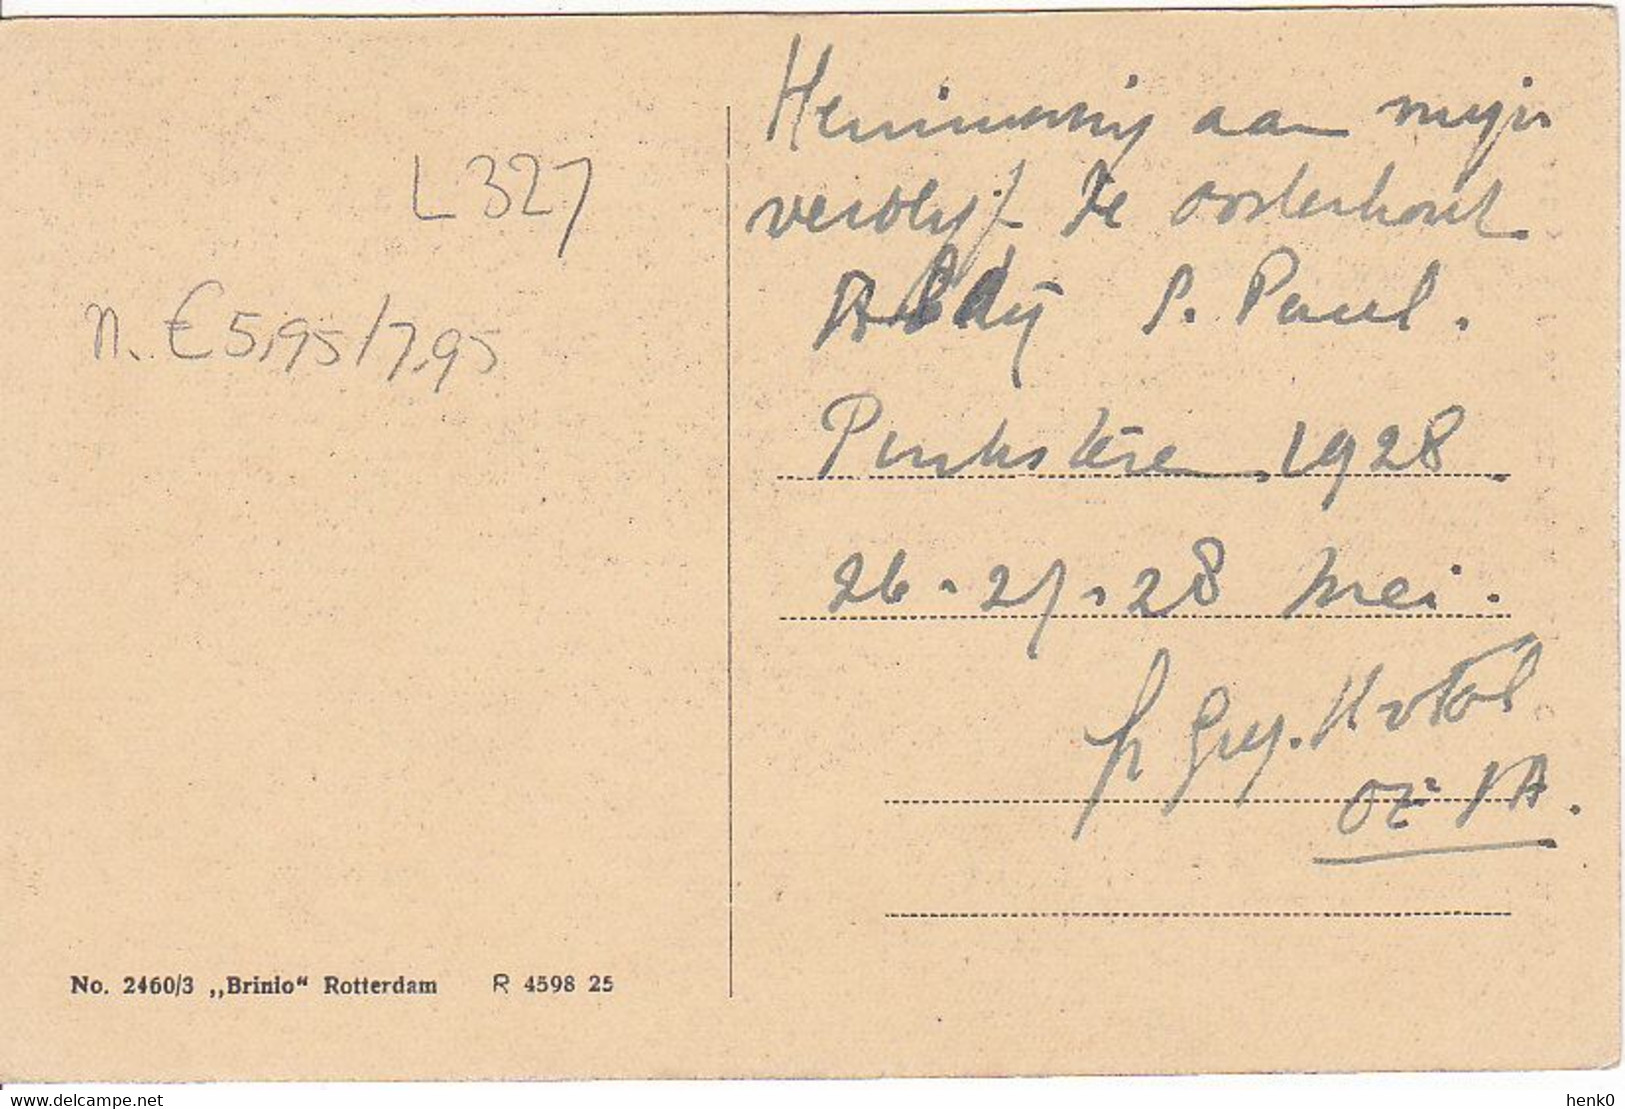 L 327
n. € 5,95/7,95
Herinnering aan mijn
verblijf te Oosterhout
Abdij S. Paul.
Pinksteren 1928
26.27.28 Mei.
fr Greg.
No. 2460/3 „Brinio“ Rotterdam R 4598 25
henk0